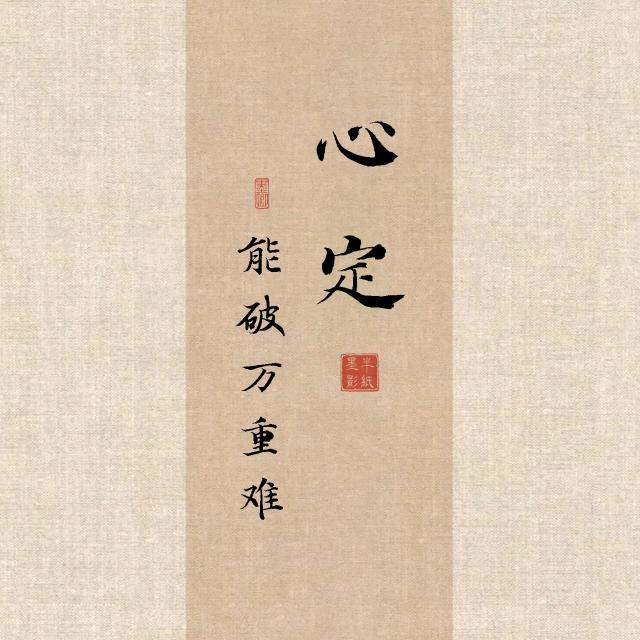 心定
半纸
墨影
能破万重难